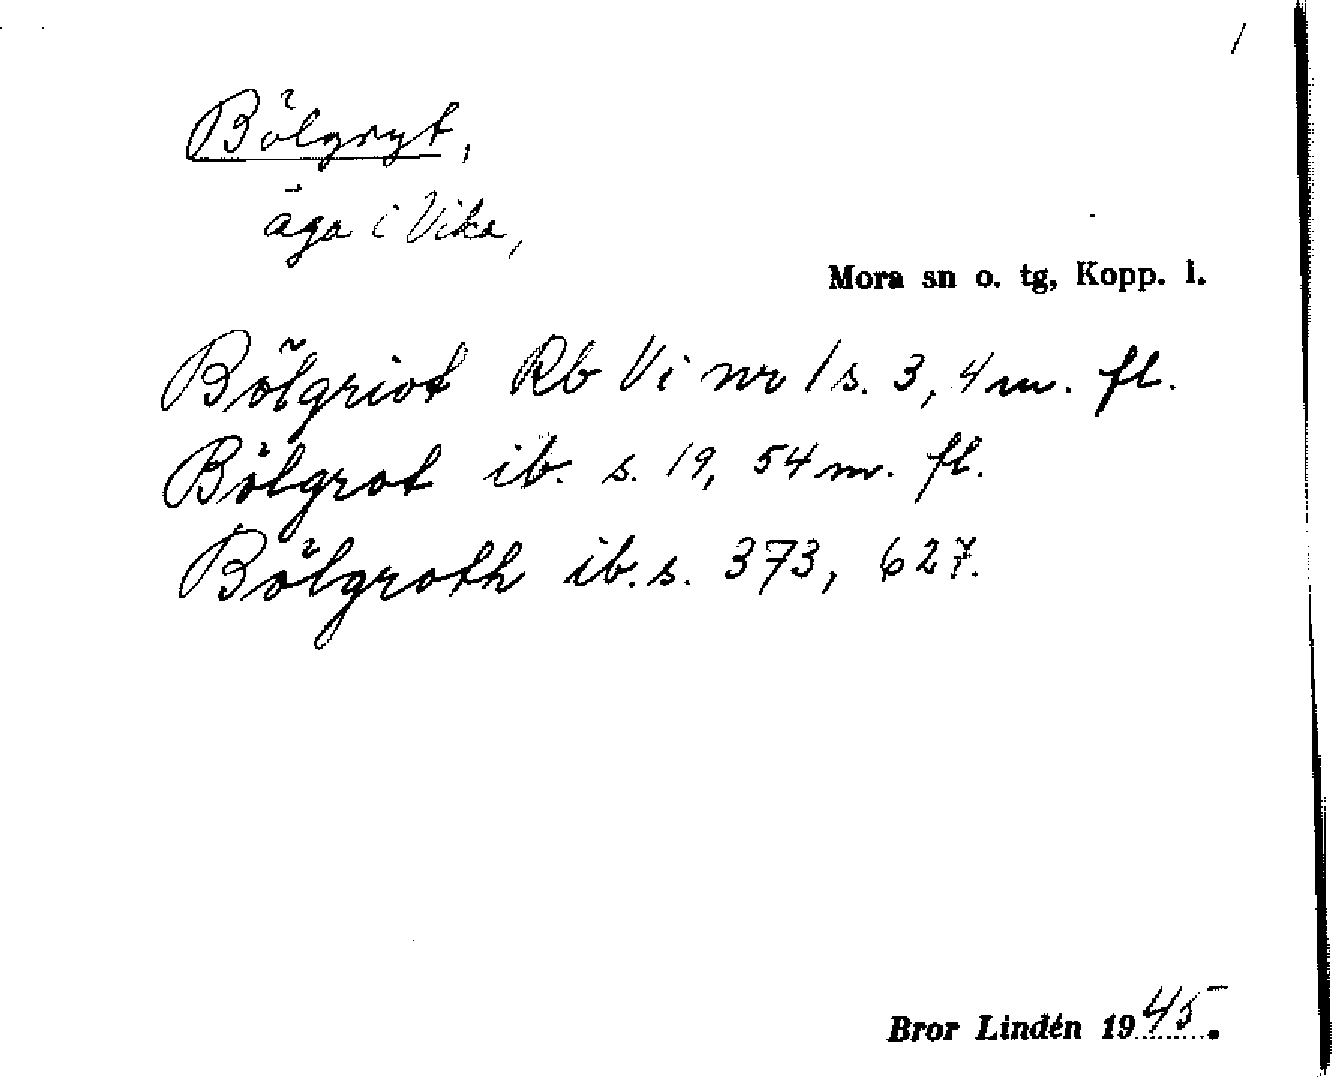 /
Bölgryt,
äga i Vika,
Mora sn o. tg, Kopp. l.
Bölgriot Rb Vi nr 1 s. 3, 4 m. fl.
Bölgrot ib. s. 19, 54 m. fl.
Bölgroth ib. s. 373, 627.
Bror Lindén 1945.